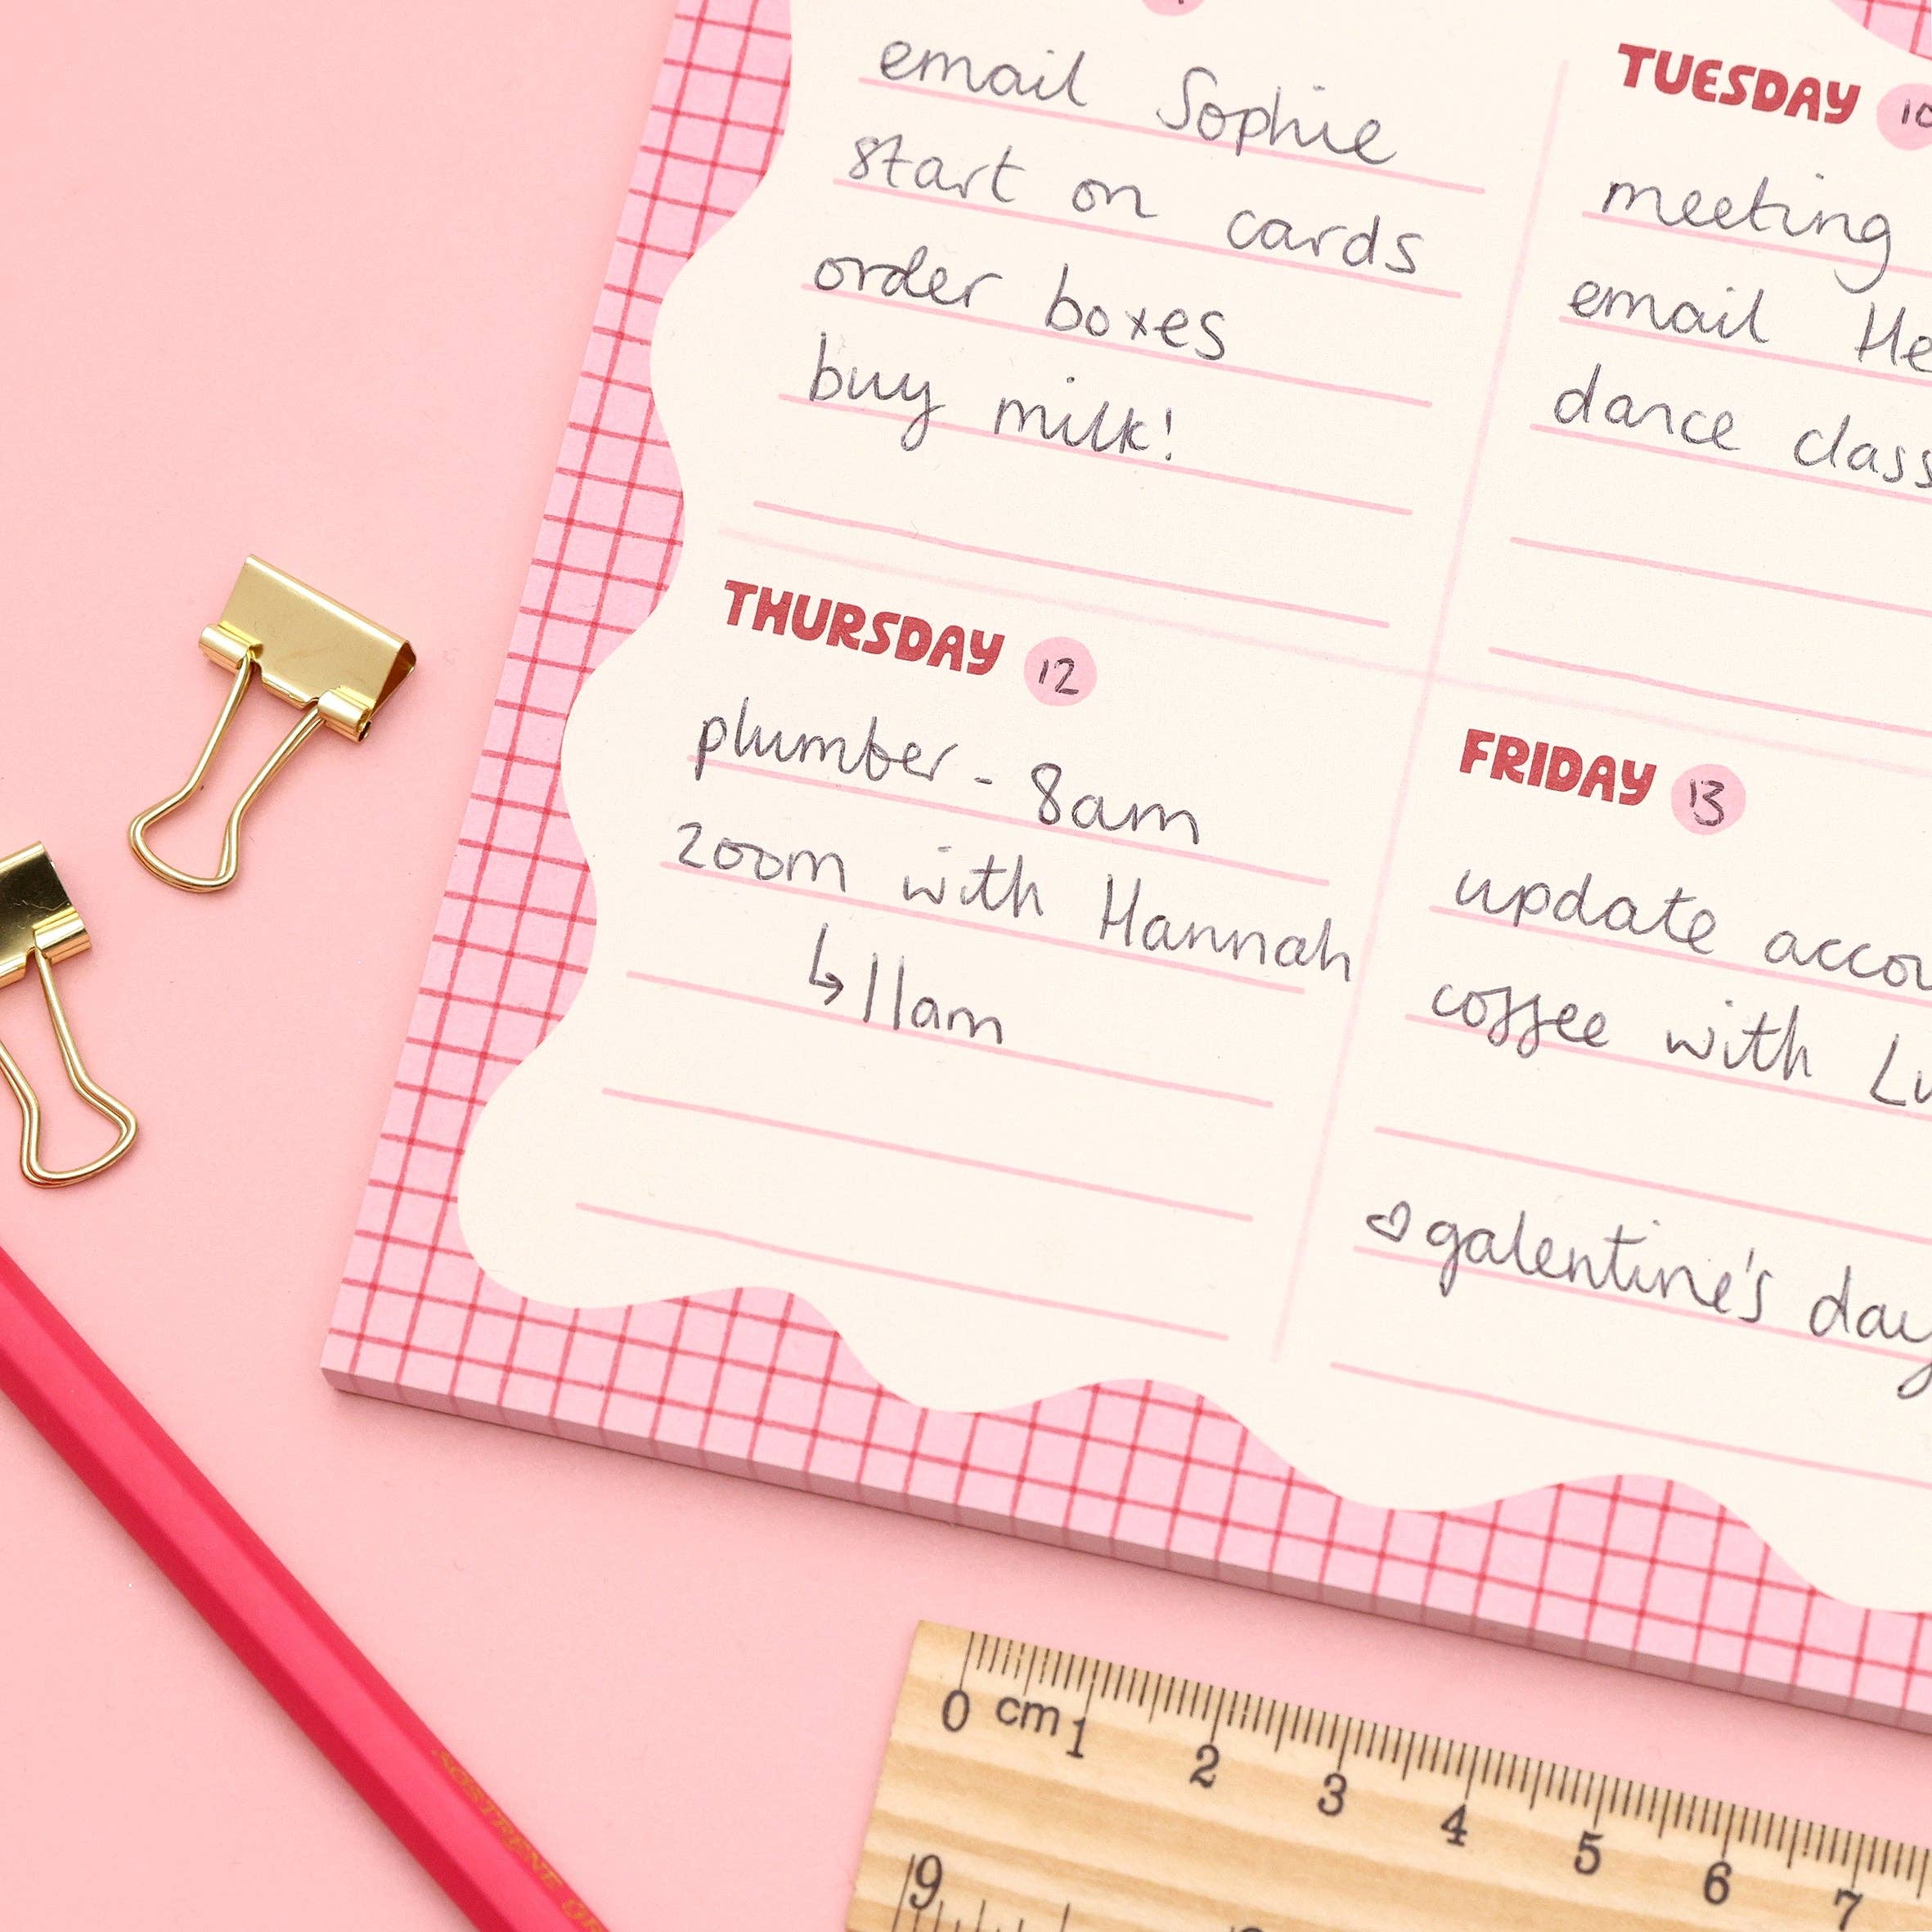 email Sophie
start on cards
order boxes
buy milk!
TUESDAY 10
meeting
email
dance class
THURSDAY 12
plumber - 8am
zoom with Hannah
↳ 11am
FRIDAY 13
update
coffee with
♡ galentine's day
0 cm 1 2 3 4 5 6 7
9